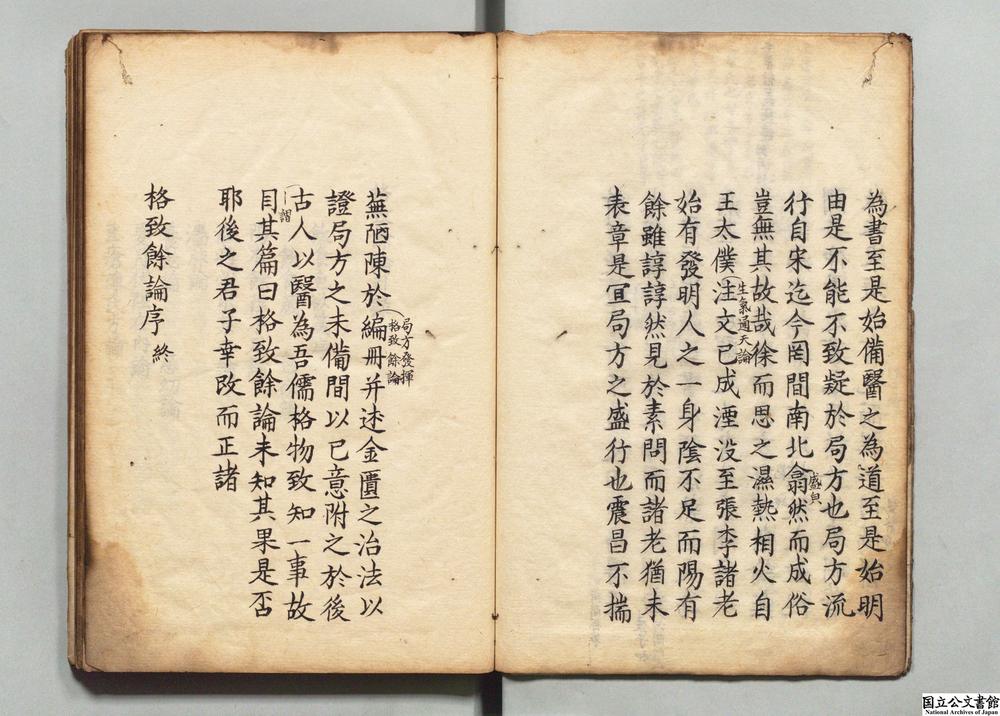 為書至是始備醫之為道至是始明
由是不能不致疑於局方也局方流
行自宋迄今罔間南北翕然而成俗
盛皃
豈無其故哉徐而思之濕熱相火自
王太僕注文已成湮没至張李諸老
生氣通天論
始有發明人之一身陰不足而陽有
餘雖諄諄然見於素問而諸老猶未
表章是冝局方之盛行也震昌不揣
蕪陋陳於編册并述金匱之治法以
局方發揮
格致餘論
證局方之未備間以已意附之於後
古人以醫為吾儒格物致知一事故
謂
目其篇曰格致餘論未知其果是否
耶後之君子幸改而正諸
格致餘論序 終
国立公文書館
National Archives of Japan